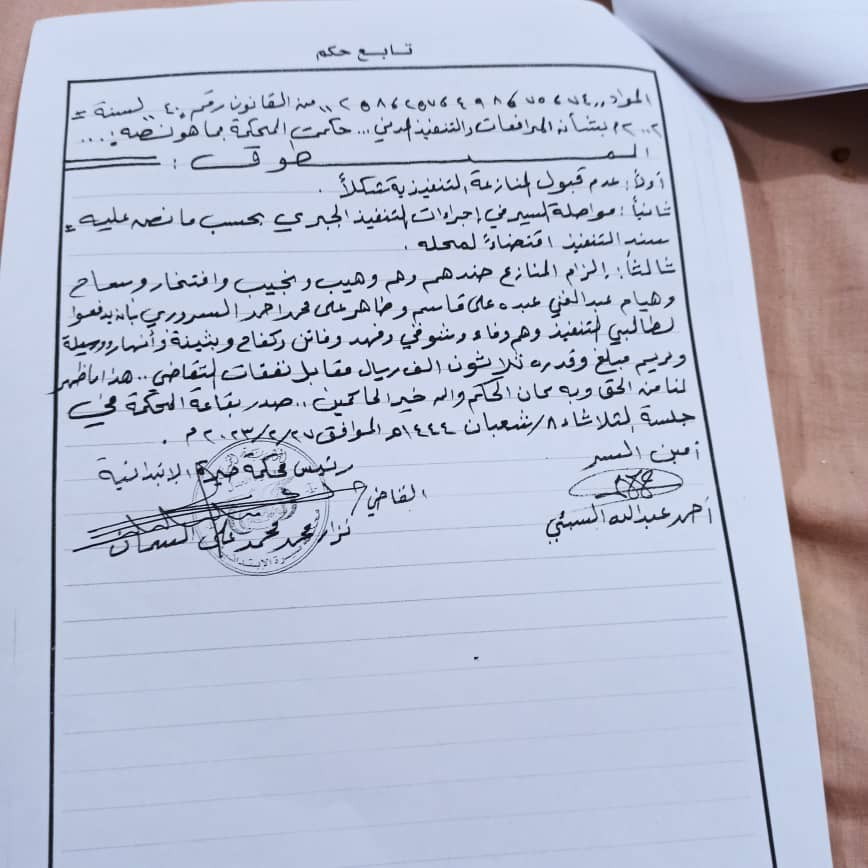 تابع حكم
المواد,, ٧٤ ٦ ٧٥ ٦ ٨ ٩ ٤ ٦ ٥٧ ٢ ٦ ٥٨ ٢,, من القانون رقم ,,٤٠,, لسنة =
٢٠٠٢م بشأن المرافعات والتنفيذ المدني ... حكمت المحكمة بما هو نصه : ...
المنطوق :
أولاً : عدم قبول المنازعة التنفيذية شكلاً .
ثانياً : مواصلة السير في إجراءات التنفيذ الجبري بحسب ما نص عليه =
سند التنفيذ اقتضاءً لمحله .
ثالثاً : إلزام المنازع ضدهم وهم وهيب ونجيب وافتخار وسماح
وهيام عبدالغني عبده علي قاسم وطاهر علي محمد احمد السروري بأن يدفعوا
لطالبي التنفيذ وهم وفاء وشوقي وفهد وفاتن وكفاح وبثينة وأنهار ووسيلة
ومريم مبلغ وقدره ثلاثون الف ريال مقابل نفقات التقاضي .. هذا ما ظهر
لنا من الحق وبه كان الحكم والله خير الحاكمين .. صدر بقاعة المحكمة في
جلسة الثلاثاء ٨/ شعبان ١٤٤٤هـ الموافق ٢٠٢٣/٢/٢٧م .
أمين السر
رئيس محكمة صيرة الإبتدائية
القاضي
أحمد عبدالله السبئي
نزار محمد محمد علي السمان